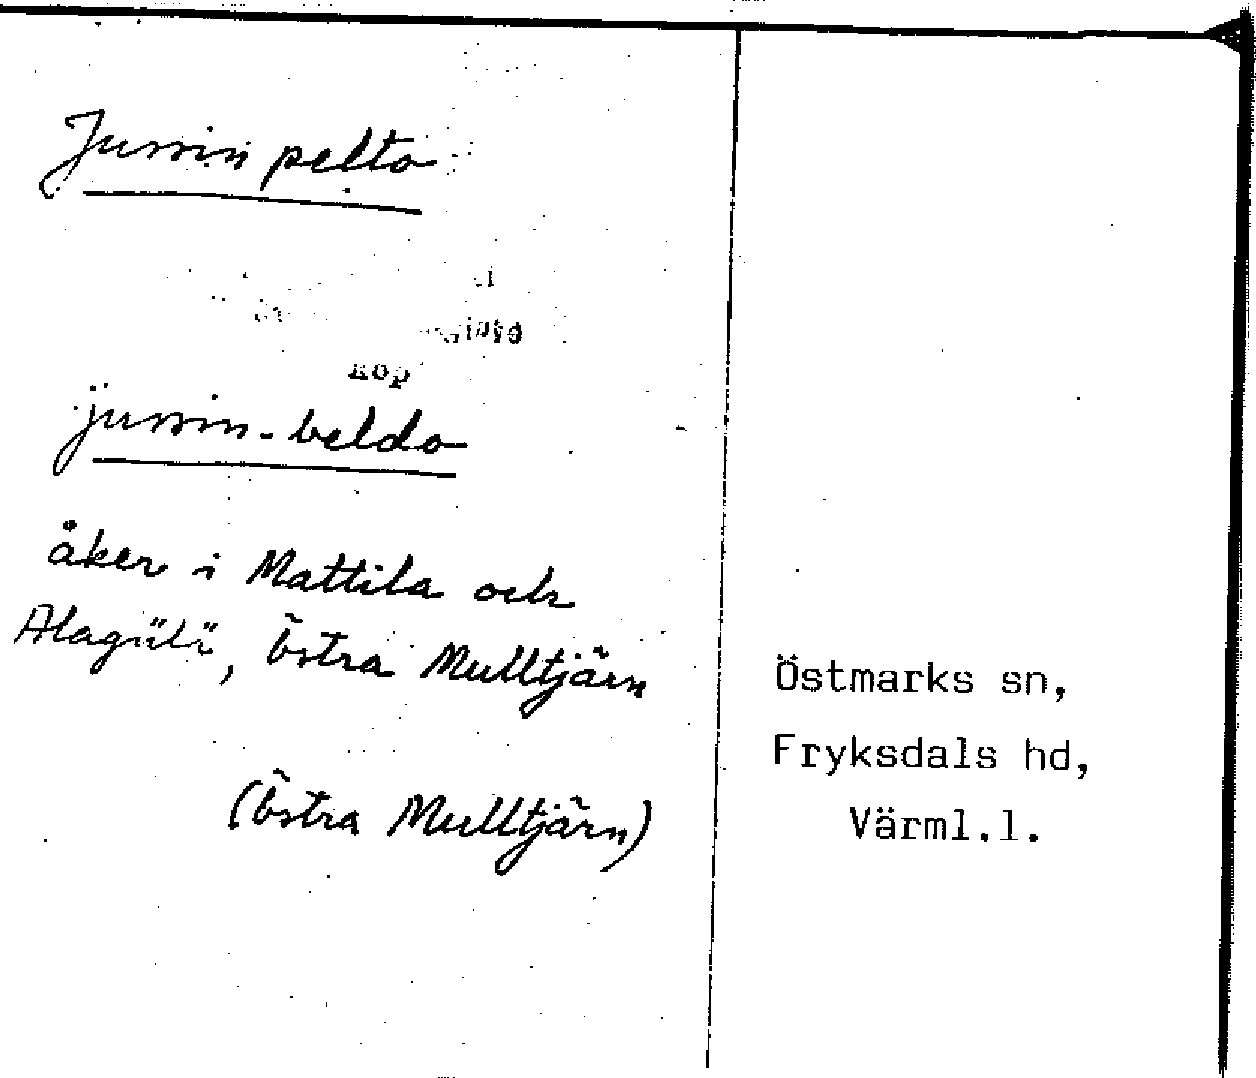 Jussin pelto
jussin-beldo
åker i Mattila och
Alagülä, Östra Mulltjärn
(Östra Mulltjärn)
Östmarks sn,
Fryksdals hd,
Värml.l.